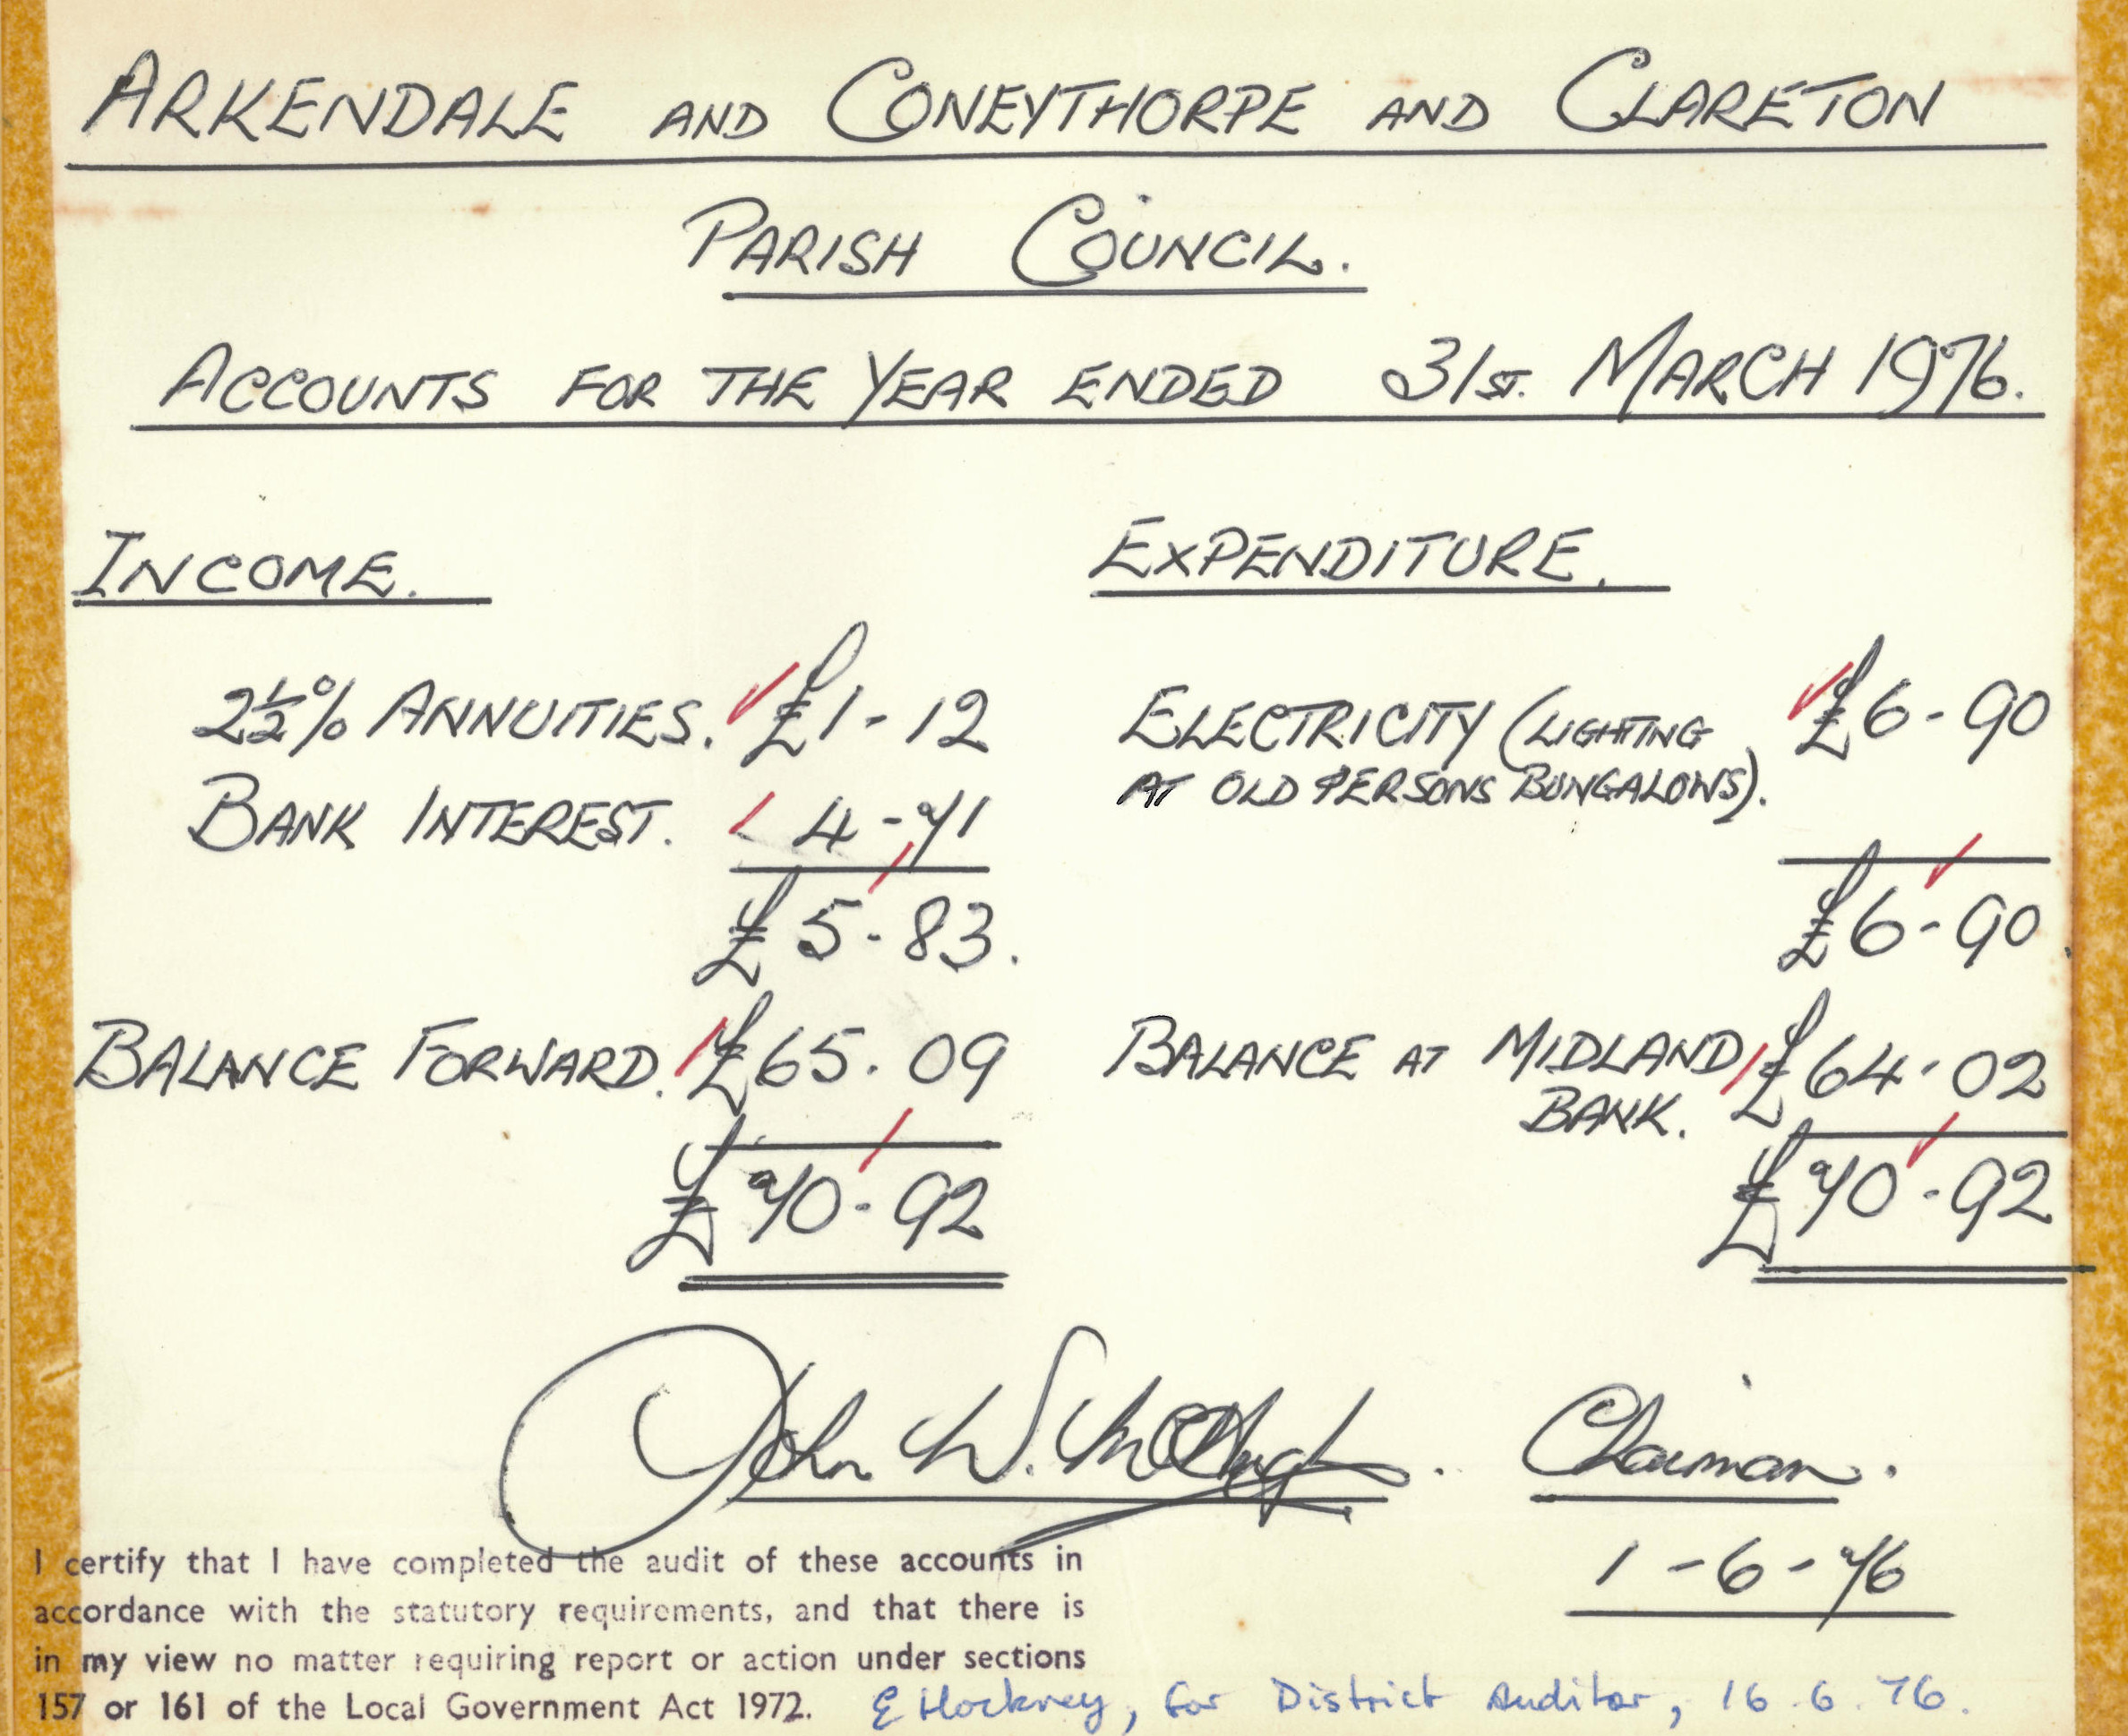 ARKENDALE AND CONEYTHORPE AND CLARETON
PARISH COUNCIL.
ACCOUNTS FOR THE YEAR ENDED 31ST. MARCH 1976.
INCOME.
2½% ANNUITIES. £1-12
BANK INTEREST. 4-71
£5-83.
BALANCE FORWARD. £65.09
£70-92
EXPENDITURE.
ELECTRICITY (LIGHTING £6-90
AT OLD PERSONS BUNGALOWS).
£6-90
BALANCE AT MIDLAND £64-02
BANK.
£70-92
John W. Chairman.
1-6-76
I certify that I have completed the audit of these accounts in
accordance with the statutory requirements, and that there is
in my view no matter requiring report or action under sections
157 or 161 of the Local Government Act 1972.
E Hockney, for District Auditor, 16.6.76.